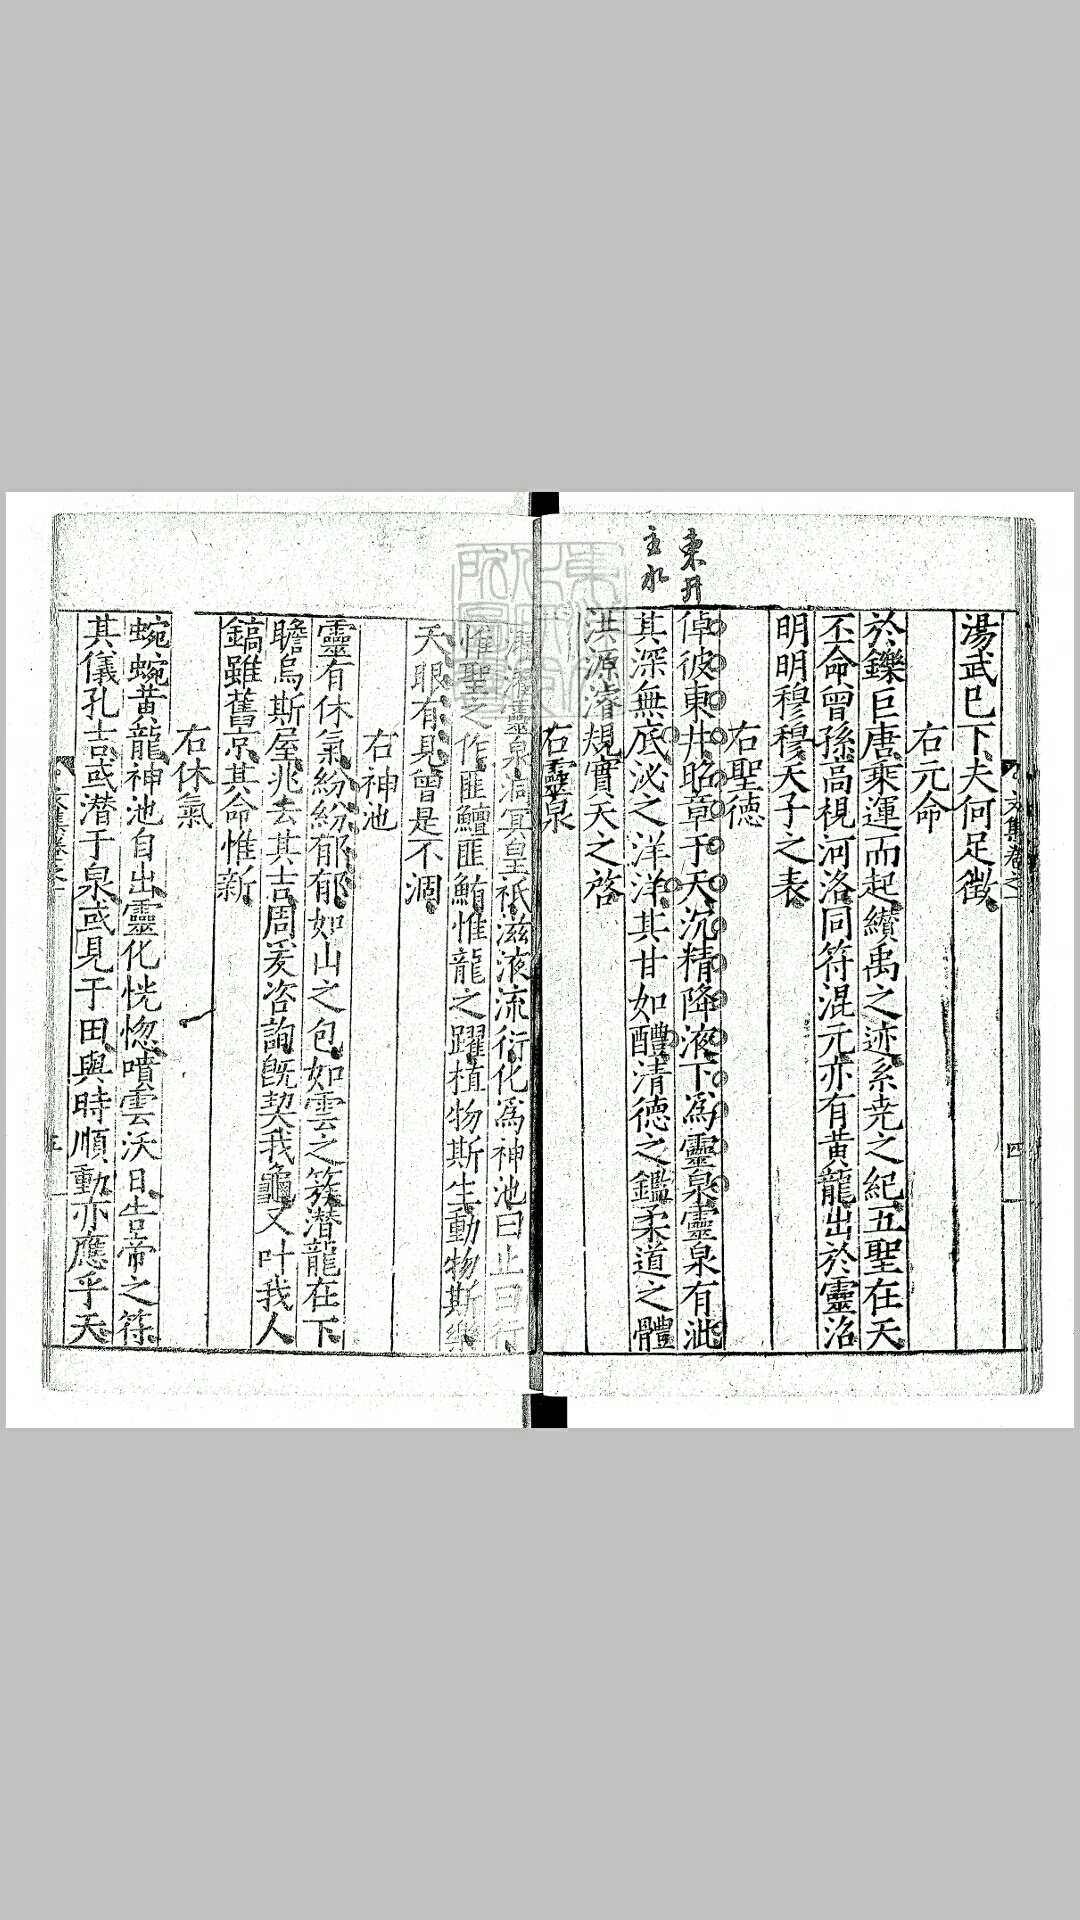 東井
主水
湯武已下夫何足徵
右元命
於鑠巨唐乘運而起纘禹之迹系尭之紀五聖在天
丕命曾孫高視河洛同符混元亦有黄龍出於靈洛
明明穆穆天子之表
右聖德
倬彼東井昭章于天沉精降液下爲靈泉靈泉有泚
其深無底泌之洋洋其甘如醴清德之鑑柔道之體
洪源濬規實天之啓
右靈泉
靈泉
皇祇滋液流衍化爲神池曰止曰行
惟聖之作匪鱣匪鮪惟龍之躍植物斯生動物斯樂
天眼有見曾是不涸
右神池
靈有休氣紛紛郁郁如山之包如雲之簇潜龍在下
瞻烏斯屋兆去其吉周爰咨詢旣契我龜又叶我人
鎬雖舊京其命惟新
右休氣
蜿蜿黄龍神池自出靈化恍惚噴雲沃日告帝之符
其儀孔吉或潜于泉或見于田與時順動亦應乎天
文集卷之一
四
五